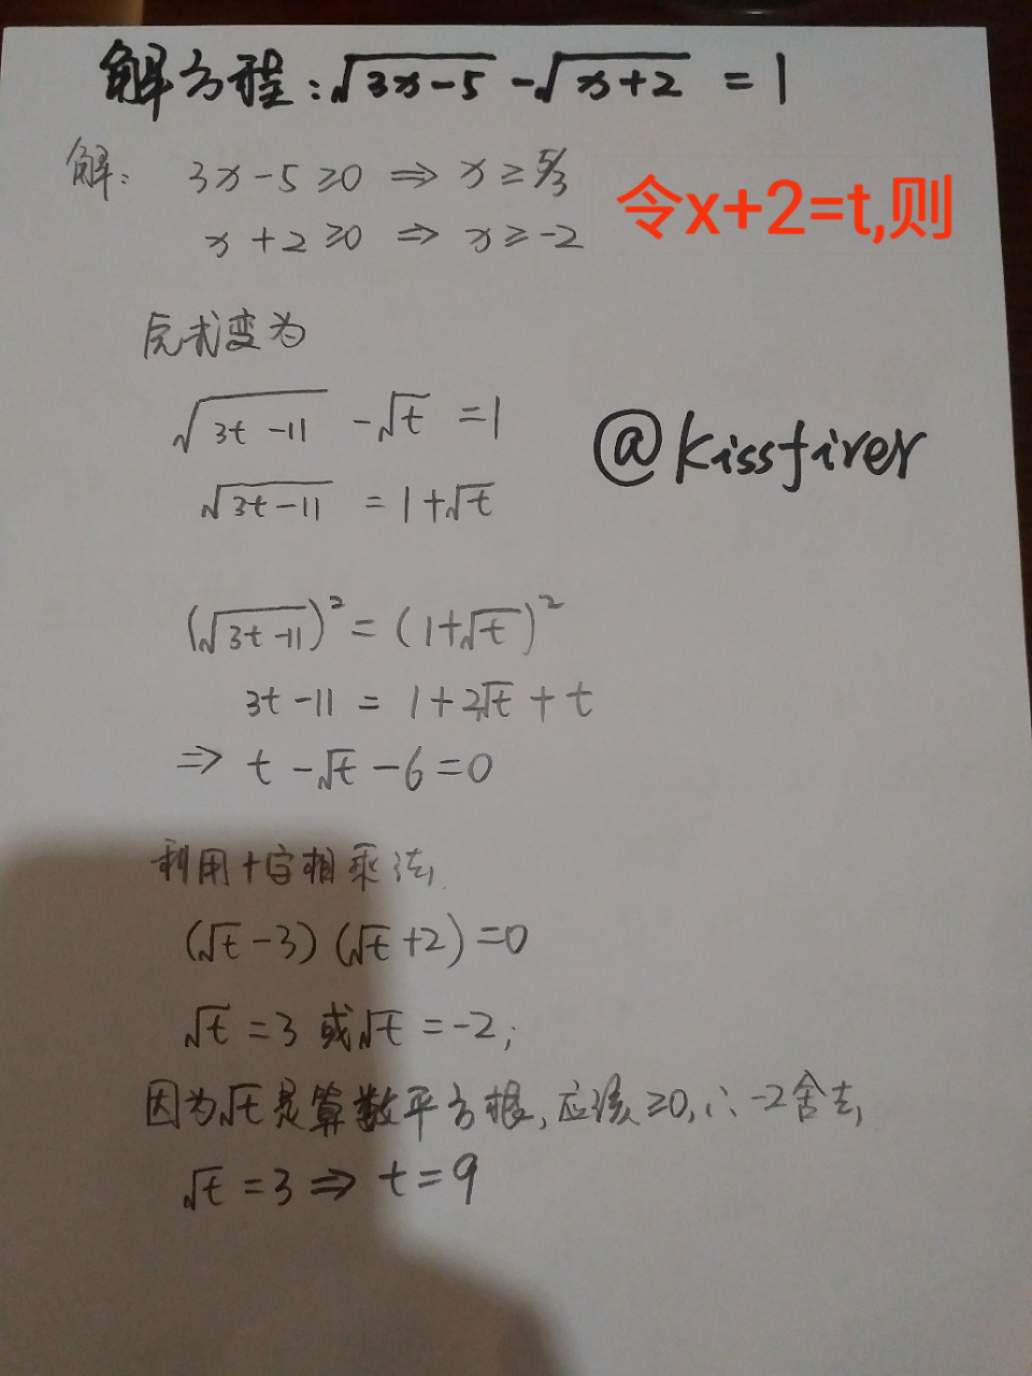 解方程:√(3x-5) -√(x+2) = 1
解: 3x-5≥0 ⇒ x≥5/3
令x+2=t,则
x+2≥0 ⇒ x≥-2
原式变为
√(3t-11) -√t =1
@kissfirer
√(3t-11) = 1+√t
(√(3t-11))²=(1+√t)²
3t-11 = 1+2√t+t
⇒ t-√t-6=0
利用十字相乘法,
(√t-3)(√t+2)=0
√t=3或√t=-2;
因为√t是算数平方根,应该≥0,∴-2舍去,
√t=3⇒t=9